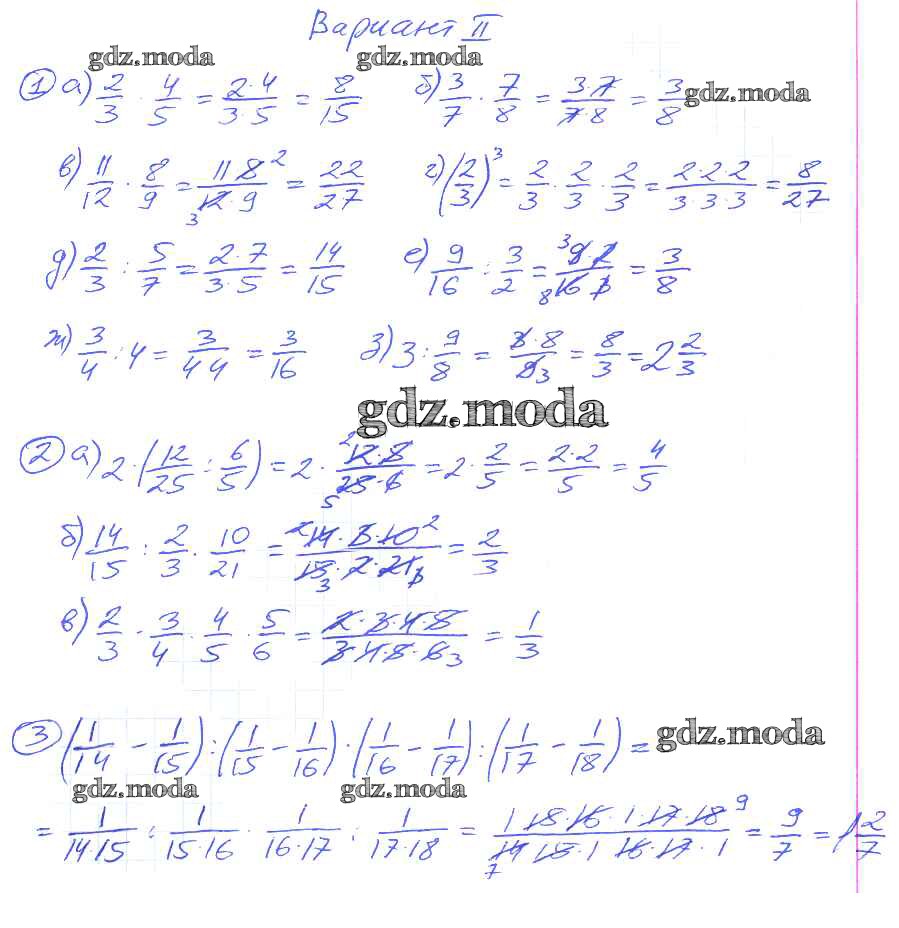 Вариант II
gdz.moda gdz.moda
① а) 2/3 · 4/5 = 2·4/3·5 = 8/15 б) 3/7 · 7/8 = 3·7/7·8 = 3/8 gdz.moda
в) 11/12 · 8/9 = 11 8 2/3 12·9 = 22/27 г) (2/3)³ = 2/3 · 2/3 · 2/3 = 2·2·2/3·3·3 = 8/27
д) 2/3 : 5/7 = 2·7/3·5 = 14/15 е) 9/16 : 3/2 = 3 9·2/8 16 3 = 3/8
ж) 3/4 : 4 = 3/4 4 = 3/16 з) 3 : 9/8 = 3·8/9 3 = 8/3 = 2 2/3
gdz.moda
② а) 2·(12/25 : 6/5) = 2 · 2 12·5/5 25·6 = 2 · 2/5 = 2·2/5 = 4/5
б) 14/15 : 2/3 · 10/21 = 2 14·3·10 2/15 3·2·21 3 = 2/3
в) 2/3 · 3/4 · 4/5 · 5/6 = 2·3·4·5/3·4·5·6 3 = 1/3
③ (1/14 − 1/15) : (1/15 − 1/16) · (1/16 − 1/17) : (1/17 − 1/18) = gdz.moda
gdz.moda gdz.moda
= 1/14·15 : 1/15·16 · 1/16·17 : 1/17·18 = 1 15·16·1·17·18 9/7 14 15·1 16·17·1 = 9/7 = 1 2/7